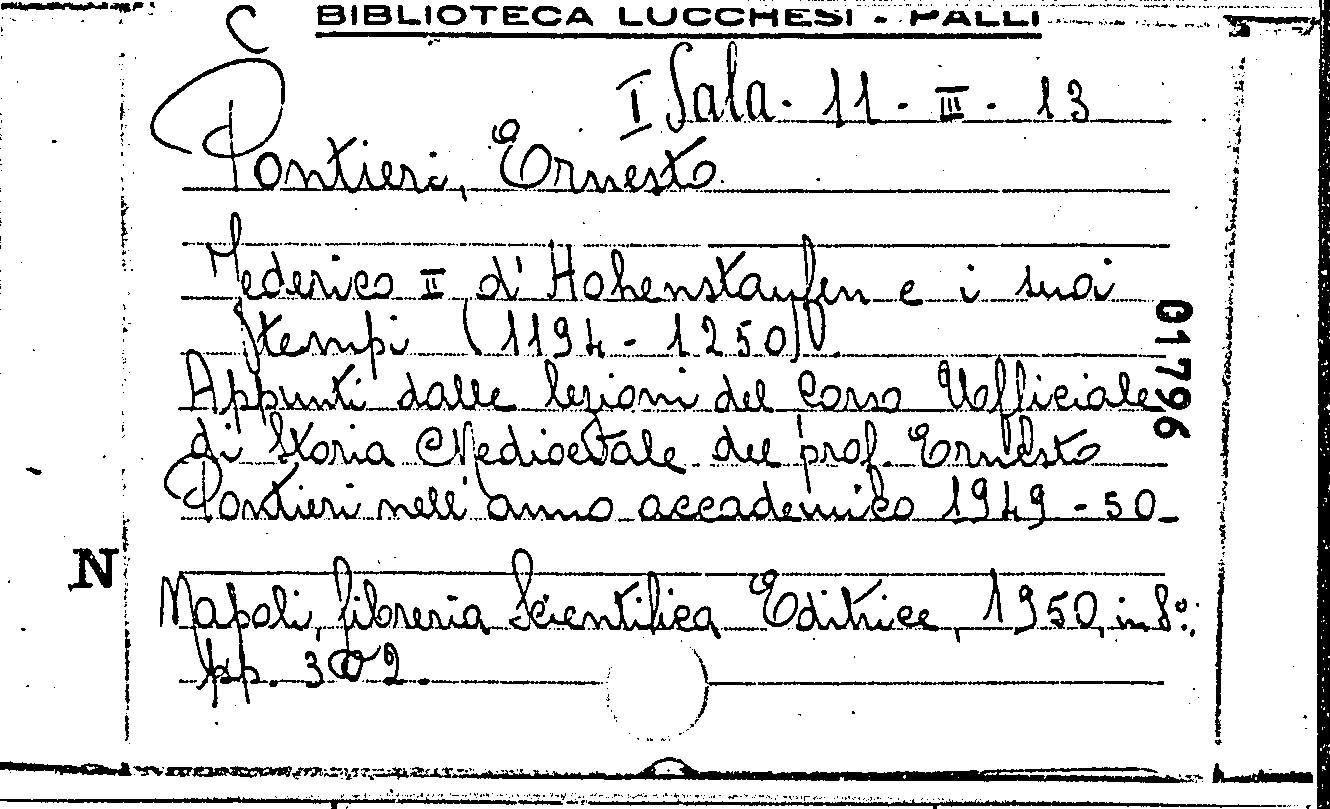 BIBLIOTECA LUCCHESI - PALLI
C
I Sala. 11 - III - 13
Pontieri, Ernesto
Federico II d'Hohenstaufen e i suoi
tempi (1194 - 1250).
Appunti dalle lezioni del Corso Ufficiale
di Storia Medioevale del prof. Ernesto
Pontieri nell'anno accademico 1949-50_
Napoli, Libreria Scientifica Editrice, 1950, in 8°;
pp. 302.
01796
N